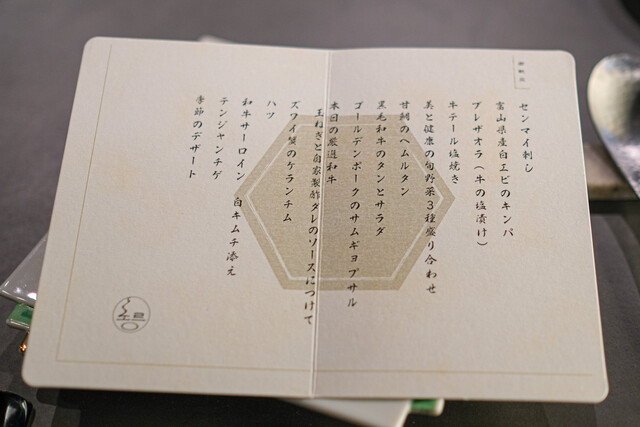 センマイ刺し
富山県産白エビのキンパ
ブレザオラ(牛の塩漬け)
牛テール塩焼き
美と健康の旬野菜3種盛り合わせ
甘鯛のヘムルタン
黒毛和牛のタンとサラダ
ゴールデンポークのサムギョプサル
本日の厳選和牛
玉ねぎと自家製酢ダレのソースにつけて
ズワイ蟹のケランチム
ハツ
和牛サーロイン 白キムチ添え
テンジャンチゲ
季節のデザート